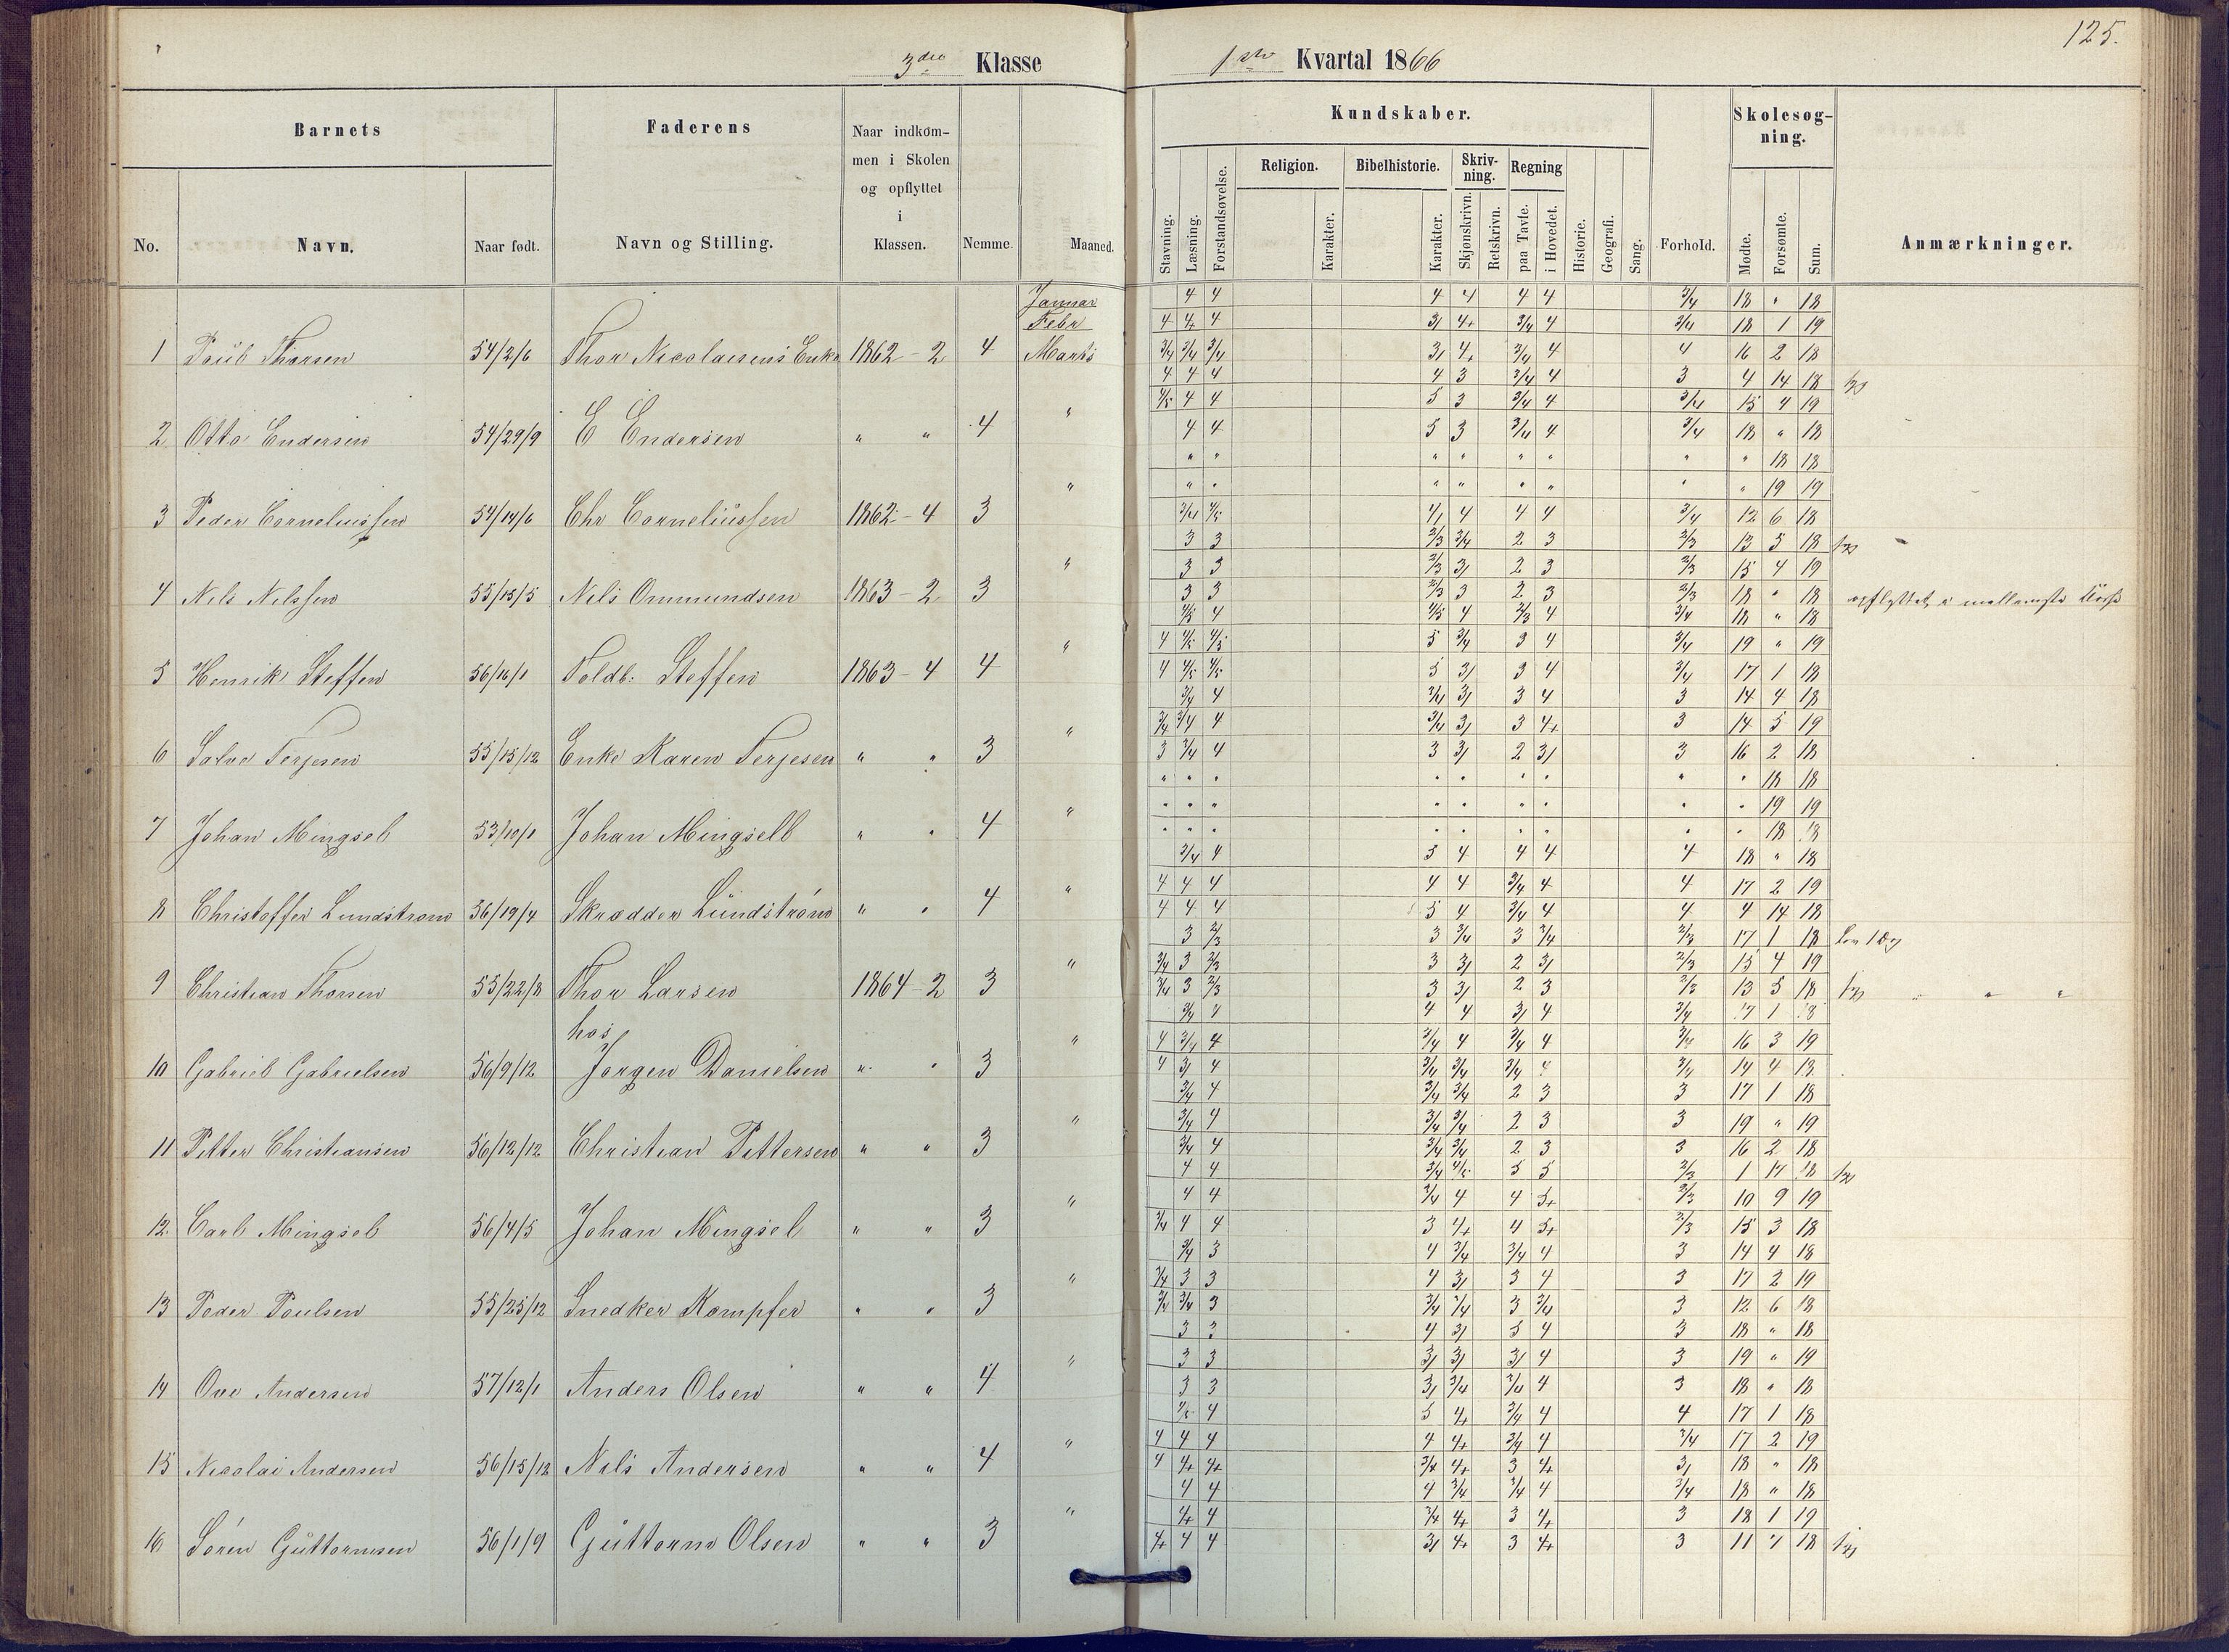 125.
3die Klasse
1ste Kvartal 1866
Barnets
Faderens
Naar indkom-
men i Skolen
og opflyttet
i
Klassen.
No.
Navn.
Naar født.
Navn og Stilling.
Nemme.
Maaned.
Kundskaber.
Skolesøg-
ning.
Religion.
Bibelhistorie.
Skriv-
ning.
Regning
Stavning.
Læsning.
Forstandsøvelse.
Karakter.
Karakter.
Skjønskrivn.
Retskrivn.
paa Tavle.
i Hovedet.
Historie.
Geografi.
Sang.
Forhold.
Mødte.
Forsømte.
Sum.
Anmærkninger.
Januar
Febr
1 Poul Thorsen 54/2/6 Thor Nicolaisens Enke 1862 - 2 4 Marts
2 Otto Endersen 54/29/9 E Endersen " " 4 "
3 Peder Corneliussen 54/14/6 Chr Corneliussen 1862 - 4 3 "
4 Nils Nilssen 55/15/5 Nils Ommundsen 1863 - 2 3 " opflyttet i mellemste Klasse
5 Henrik Steffen 56/16/1 Toldb: Steffen 1863 - 4 4 "
6 Salve Terjesen 55/15/12 Enke Karen Terjesen " " 3 "
7 Johan Mingsel 53/10/1 Johan Mingsell " " 4 "
8 Christoffer Lundstrøm 56/19/4 Skrædder Lundstrøm " " 4 "
9 Christian Thorsen 55/22/8 Thor Larsen 1864 - 2 3 "
hos
10 Gabriel Gabrielsen 56/9/12 Jørgen Danielsen " " 3 "
11 Petter Christiansen 56/12/12 Christian Pettersen " " 3 "
12. Carl Mingsel 56/4/5 Johan Mingsel " " 3 "
13 Peder Poulsen 55/25/12 Snedker Kampfer " " 3 "
14 Ove Andersen 57/12/1 Anders Olsen " " 4 "
15 Nicolai Andersen 56/15/12 Nils Andersen " " 4 "
16 Sören Guttormsen 56/1/9 Guttorm Olsen " " 3 "
4 4 4 4 4 4 3/4 18 " 18
4 4+ 4 3/ 4+ 3/4 4 3/4 18 1 19
3/4 3/4 3/4 3/ 4+ 3/4 4 4 16 2 18
4 4 4 4 3 3/4 4 3 4 14 18
4/5 4 4 5 3 3/4 4 3/4 15 4 19
4 4 5 3 3/4 4 3/4 18 " 18
" " " " " " " " 18 18
" " " " " " " " 19 19
3/4 4/5 4/ 4 4 4 3/4 12 6 18
3 3 2/3 3/4 2 3 2/3 13 5 18
3 3 2/3 3/ 2 3 2/3 15 4 19
3 3 2/3 3 2 3 2/3 18 " 18
4/5 4 4/5 4 2/3 4 3/4 18 " 18
4 4/5 4/5 5 3/4 3 4 3/4 19 " 19
4 4/5 4/5 5 3/ 3 4 3/4 17 1 18
3/4 4 3/4 3/ 3 4 3 14 4 18
3/4 3/4 4 3/4 3/ 3 4+ 3 14 5 19
3 3/4 4 3 3/ 2 3/ 3 16 2 18
" " " " " " " " " 18 18
" " " " " " " " " 19 19
" " " " " " " " " 18 18
3/4 4 5 4 4 4 4 18 " 18
4 4 4 4 4 3/4 4 4 17 2 19
4 4 4 5 4 3/4 4 4 4 14 18
3 2/3 3 3/4 3 3/4 2/3 17 1 18
3/4 3 2/3 3 3/ 2 3/ 2/3 15 4 19
3/4 3 2/3 3 3/ 2 3 2/3 13 5 18
3/4 4 4 4 3/ 4 3/4 17 1 18
4 3/4 4 3/4 4 3/4 4 3/4 16 3 19
4 3/ 4 3/4 3/4 3/4 4 3/4 14 4 18
3/4 4 3/4 3/4 2 3 3 17 1 18
3/4 4 3/4 3/4 2 3 3 19 " 19
3/4 4 3/4 3/4 2 3 3 16 2 18
4 4 3/4 4/5 5 5 2/3 1 17 18
4 4 3/4 4 4 5+ 2/3 10 9 19
3/4 4 4 3 4+ 4 5+ 2/3 15 3 18
3/4 3 4 3/4 3/4 4 3 14 4 18
3/4 3 3 4 3/ 3 4 3 17 2 19
3/4 3/4 3 3/4 3/4 3 3/4 3 12 6 18
3 3 4 3/ 5 4 3 18 " 18
3 3 3/ 3/ 3/ 4 3 19 " 19
3 3 3/ 3/4 3/4 4 3 18 " 18
4/5 4 5 4+ 3/4 4 4 17 1 18
4 4 4 4 4+ 3/4 4 3/4 17 2 19
4 4+ 4+ 3/4 4+ 3 4+ 3/ 18 " 18
4 4 4 3/4 3/4 4 3/4 18 " 18
4+ 4 3/4 4+ 3 4+ 3 18 1 19
4+ 4 4 3/ 4+ 3 4+ 3 11 7 18